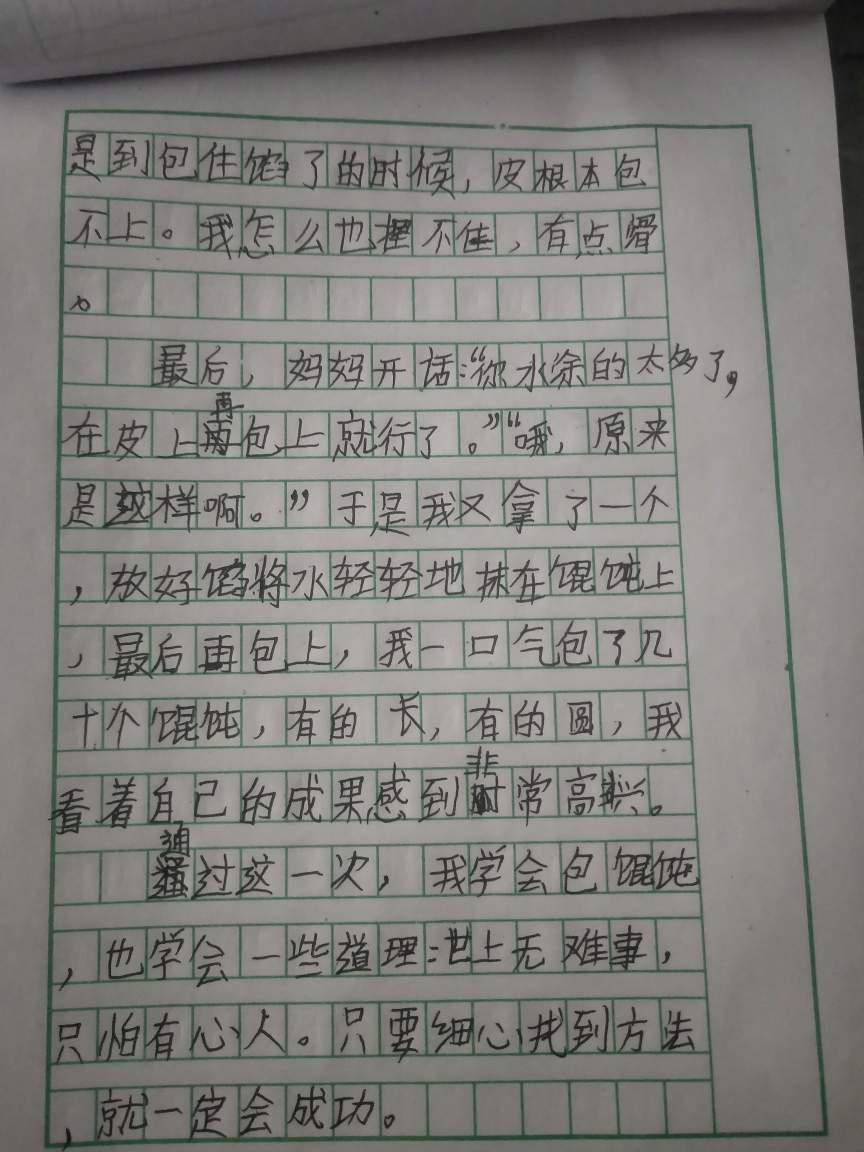 是到包住馅了的时候，皮根本包
不上。我怎么也捏不住，有点滑
。
最后，妈妈开话：“你水涂的太多了，
在皮上再包上就行了。”“哦，原来
是这样啊。”于是我又拿了一个
，放好馅将水轻轻地抹在馄饨上
，最后再包上，我一口气包了几
十个馄饨，有的长，有的圆，我
看着自己的成果感到非常高兴。
通过这一次，我学会包馄饨
，也学会一些道理：世上无难事，
只怕有心人。只要细心找到方法
，就一定会成功。